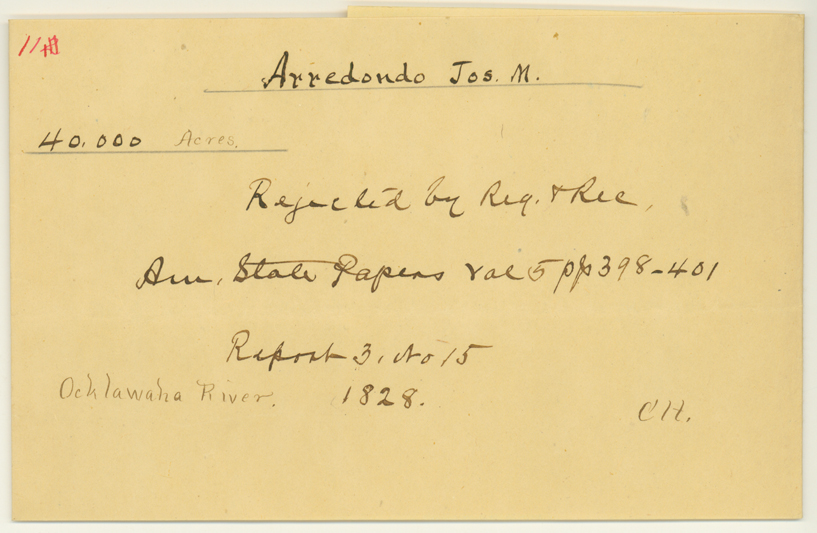 Arredondo Jos. M.
40.000 Acres.
Rejected by Reg. & Rec,
Am. State Papers vol 5 pp 398-401
Report 3. No 15
Ocklawaha River. 1828.
CH.